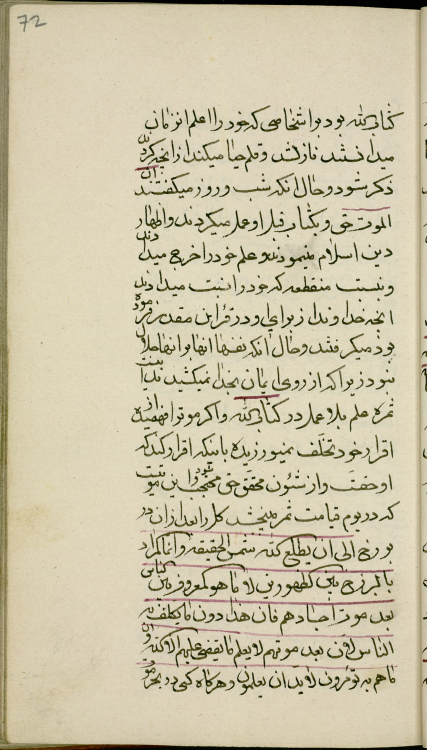 72
کتاب الله بود بر اشخاصی که خود را اعلم از زمان
میدانستند نازل شد و قلم حیا میکند از آنچه کردند
ذکر شود و حال آنکه شب و روز میگفتند ان
الموت حق و بکتاب قبل او عمل میکردند و اظهار
دین اسلام مینمودند و علم خود را خرج میدادند
و نسبت منقطعه که خود را نسبت میدادند
آنچه خداوند از برای او در قرآن مقدر فرموده
بود میگرفتند و حال آنکه نفسها آنها بر آنها حلال
نبود زیرا که از روی ایمان بخدا نمیکشیدند اینست
ثمره علم بلا عمل در کتاب الله و اگر موت را فهمیده از
اقرار خود تخلف نمیورزیده باینکه اقرار کند که
او حقست و از شئون محقق حق محتجب شود و این موتیست
که در یوم قیامت ثمر میبخشد کل را بعد از آن در
برزخ الی ان یطلع الله شمس الحقیقة و انا المراد
بالبرزخ بین الظهورین لا ما هو المعروف بین الناس
بعد موت اجسادهم فان هذا دون ما یکلف به
الناس لان بعد موتهم لا یعلم ما یقضی علیهم الا الله و ان
ما هم به یؤمرون لابد ان یعلمون و هرگاه کسی در بحر